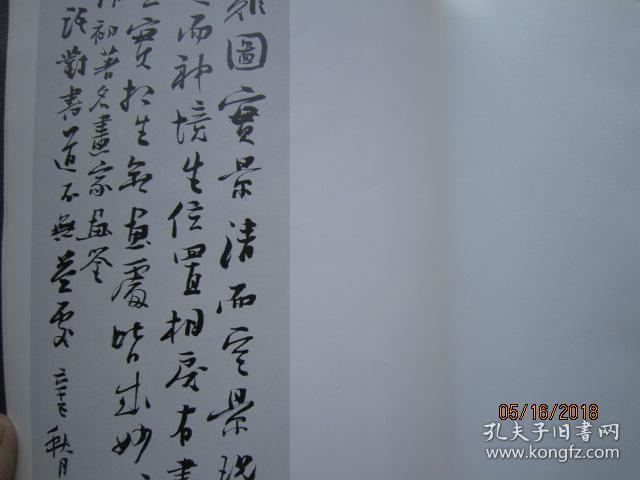 難圖實景清而空景現
而神境生位置相戾有畫
實相生無畫處皆成妙
初著名畫家畫筌
語對書道不無益處
辛 秋月
05/16/2018
孔夫子旧书网